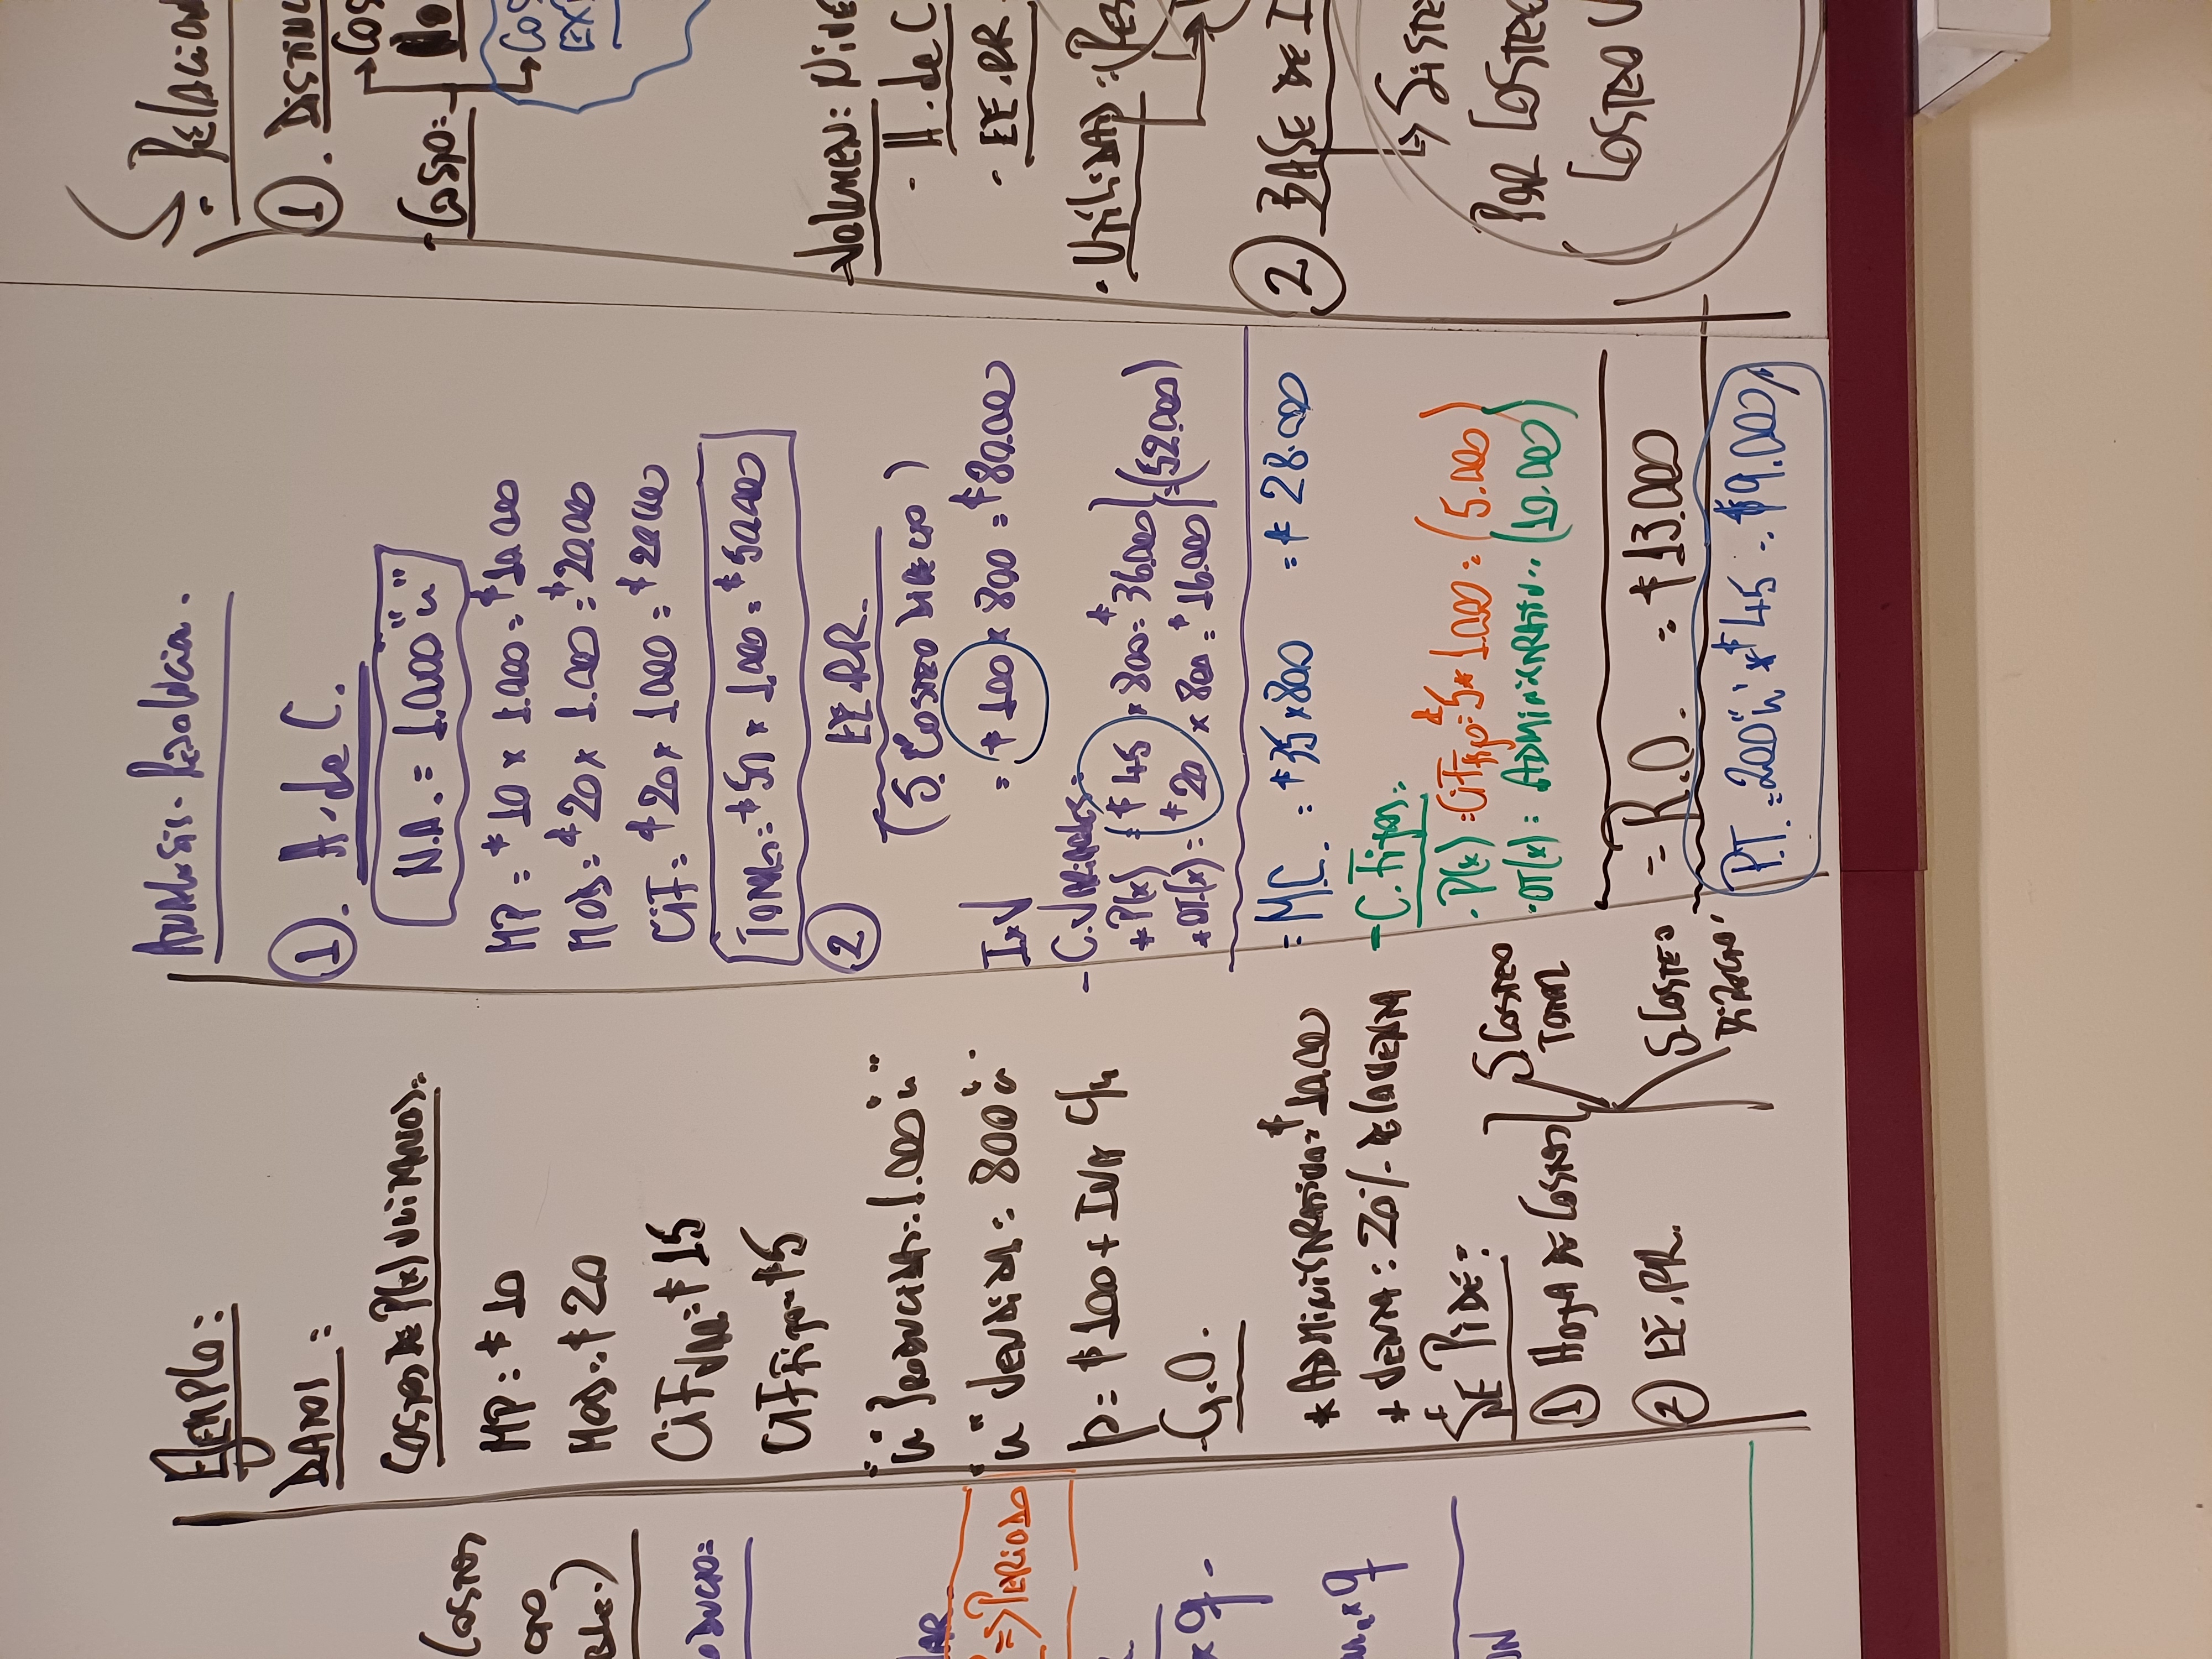 Costos
Ejemplo:
Datos:
Costos de P(x) Unitarios:
MP: $10
MOD: $20
CIF var: $15
CIF Fijo: $5
"u" Producidas: 1.000 "u"
"u" Vendidas: 800 "u"
p = $100 + IVA c/u
- G.O.
* Administrativo = $10.000
* Venta: 20% de la venta
Se Pide:
① Hoja de Costos
② EE.RR.
S. Costeo
Total
S. Costeo
Directo
=> Periodo
Análisis - Resolución.
①. H. de C.
N.A. = 1.000 "u"
MP: $10 x 1.000 = $10.000
MOD: $20 x 1.000 = $20.000
CIF: $20 x 1.000 = $20.000
Total = $50 x 1.000 = $50.000
② EE.RR.
(S. Costeo Directo)
IxV = $100 x 800 = $80.000
- C. Variables:
* P(x) = $45 x 800 = $36.000
* OT.(x) = $20 x 800 = $16.000 } = (52.000)
= M.C. = $35 x 800 = $28.000
- C. Fijos:
. P(x) = CIF Fijo = $5 * 1.000 = (5.000)
. OT(x) = Administrativo. (10.000)
= R.O. = $13.000
P.T. = 200 "u" * $45 = $9.000
①. 
Costo:
No
Volumen:
- H. de C
- EE.RR.
. Utilidad =
② Base de
Por Costeo
Costeo